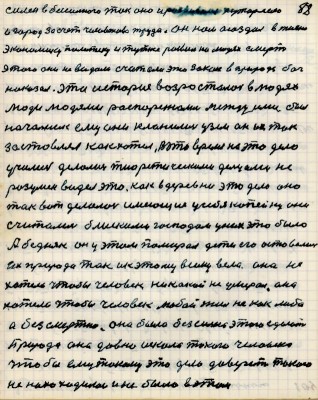 83
силен в бессилного так оно и
народ за счет человека труда. он нам создал в жизни
экономику, политику и путь развил на людях смерть
этого они не видали считали это закон в природе бог
наказы. Эта история возросталов в людях
люди людями распоряжали между ими был
начальник ему они кланились а он их так
заставлял как хотел, в это время на это дело
учился делом теоретическими делами не
разумея видел это, как в деревне это дело оно
так вот делалось имеющия у себя копейку они
считались близкими господам у них это было
А бедняк он у этом помирал дети его оставались
их природа так их к этому всему вела она не
хотела чтобы человек никакой не умирал, она
хотела чтобы человек любой жил не как либо
а безсмертно. она была безсильна этого сделать
Природа она давно искала такого человека
чтобы ему такому это дело доверить такого
не находилось и не было в этом